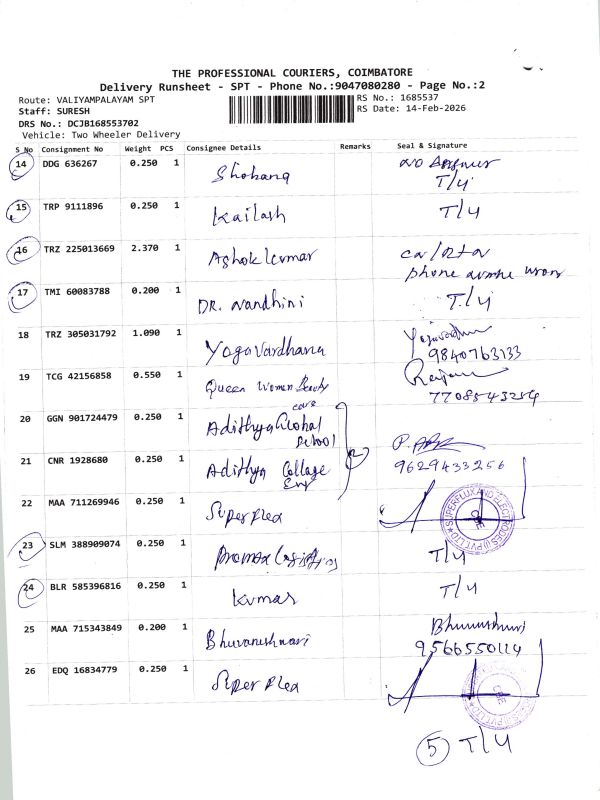 THE PROFESSIONAL COURIERS, COIMBATORE
Delivery Runsheet - SPT - Phone No.:9047080280 - Page No.:2
Route: VALIYAMPALAYAM SPT
RS No.: 1685537
Staff: SURESH
RS Date: 14-Feb-2026
DRS No.: DCJB168553702
Vehicle: Two Wheeler Delivery
S No Consignment No Weight PCS Consignee Details Remarks Seal & Signature
14 DDG 636267 0.250 1 Shobana T/4
15 TRP 9111896 0.250 1 Kailash T/4
16 TRZ 225013669 2.370 1 Ashok Kumar phone
17 TMI 60083788 0.200 1 DR. Nandhini T/4
18 TRZ 305031792 1.090 1 Yogavardhana
9840763133
19 TCG 42156858 0.550 1 Queen Women Beauty care
7708543254
20 GGN 901724479 0.250 1 Adithya Global School
21 CNR 1928680 0.250 1 Adithya Collage Eng 2
9629433256
22 MAA 711269946 0.250 1 Superflex
SUPERFLUX AND ELECTRODES (I) PVT LTD
CBE
23 SLM 388909074 0.250 1 T/4
24 BLR 585396816 0.250 1 Kumar T/4
25 MAA 715343849 0.200 1 Bhuvaneshwari
9566550114
26 EDQ 16834779 0.250 1 Superflex
CBE
5 T/4